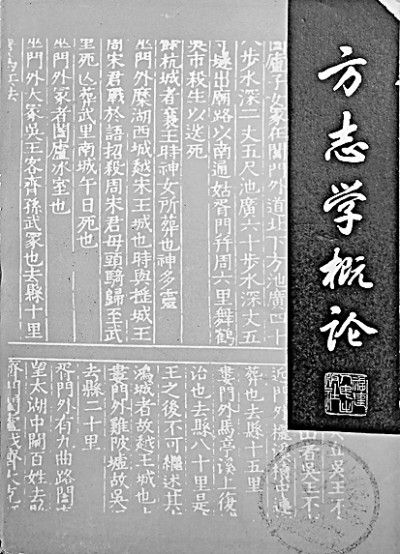 方志学概论
廬子女冢在閶門外道北下方池廣四十
步水深二丈五尺池廣六十步水深丈五
出廟路以南通姑胥門并周六里舞鶴
吳市殺生以送死
餘杭城者襄王時神女所葬也神多靈
巫門外麋湖西城越宋王城也時與搖城王
周宋君戰於語招殺周宋君毋頭騎歸至武
里死亡葬武里南城午日死也
巫門外冢者闔廬冰室也
巫門外大冢吳王客齊孫武冢也去縣十里
葬也去縣十五里
婁門外馬亭溪上復
治也去縣八十里是
王之後不可繼述其
鴻城者故越王城也
婁門外雞陂墟故吳
去縣二十里
胥門外有九曲路闔
望太湖中闚百姓去
齊門闔廬伐齊大克